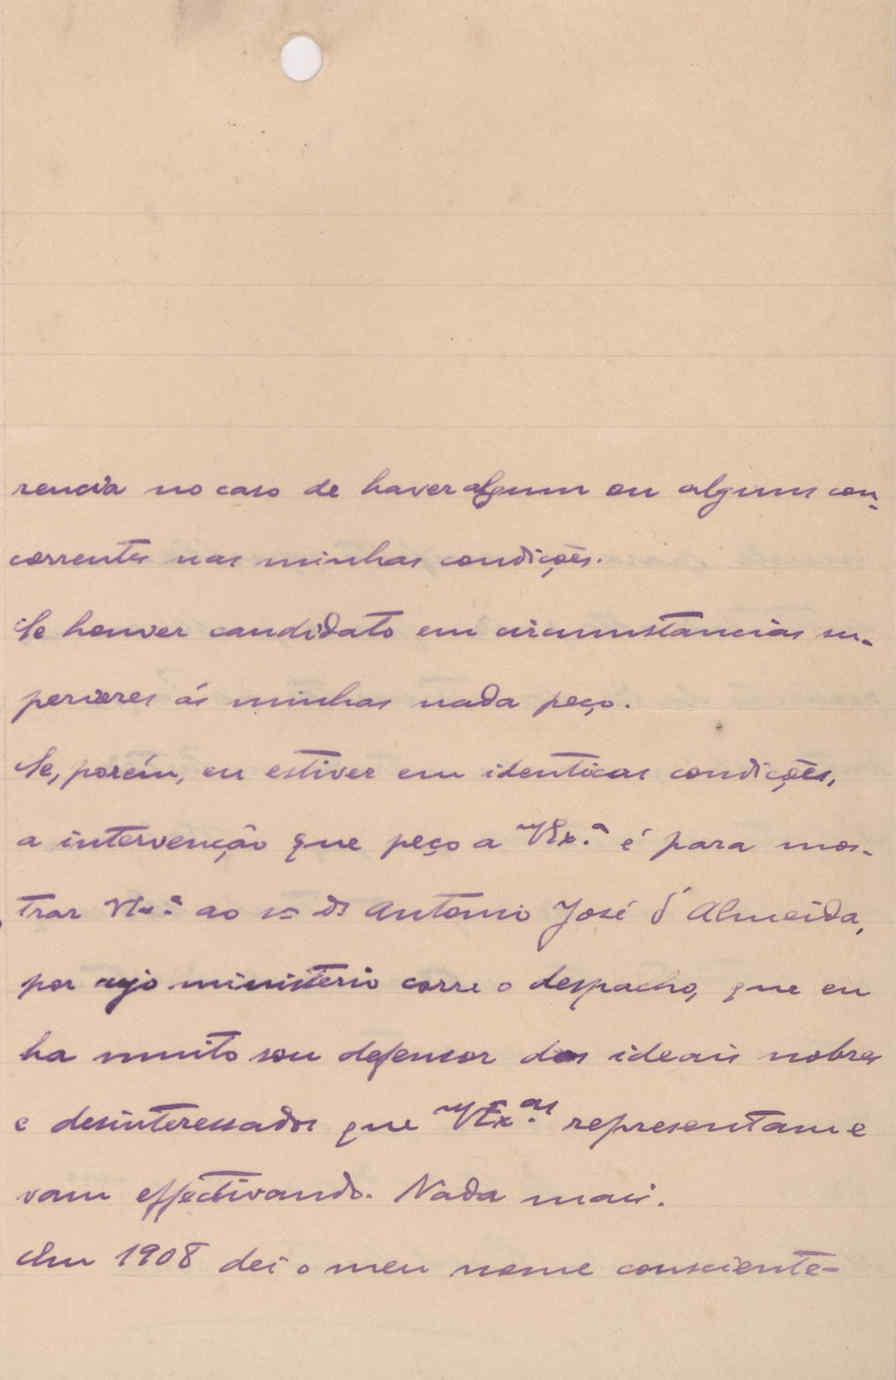 rencia no caso de haver algum ou alguns con-
correntes nas minhas condições.
Se houver candidato em circumstancias su-
periores ás minhas nada peço.
Se, porém, eu estiver em identicas condições,
a intervenção que peço a VEx.ª é para mos-
trar VEx.ª ao sr dr Antonio José d'Almeida,
por cujo ministerio corre o despacho, que eu
ha muito sou defensor dos ideais nobres
e desinteressados que VEx.as representam e
vam effectivando. Nada mais.
Em 1908 dei o meu nome consciente-